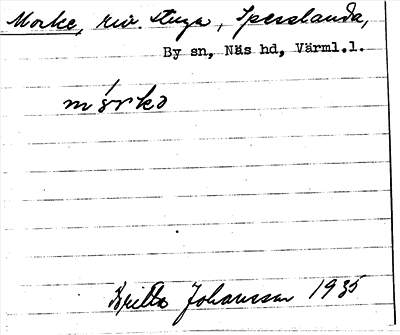 Morke, riv. stuga, Spesslanda,
By sn, Näs hd, Värml.l.
mórkə
Britta Johansson 1935